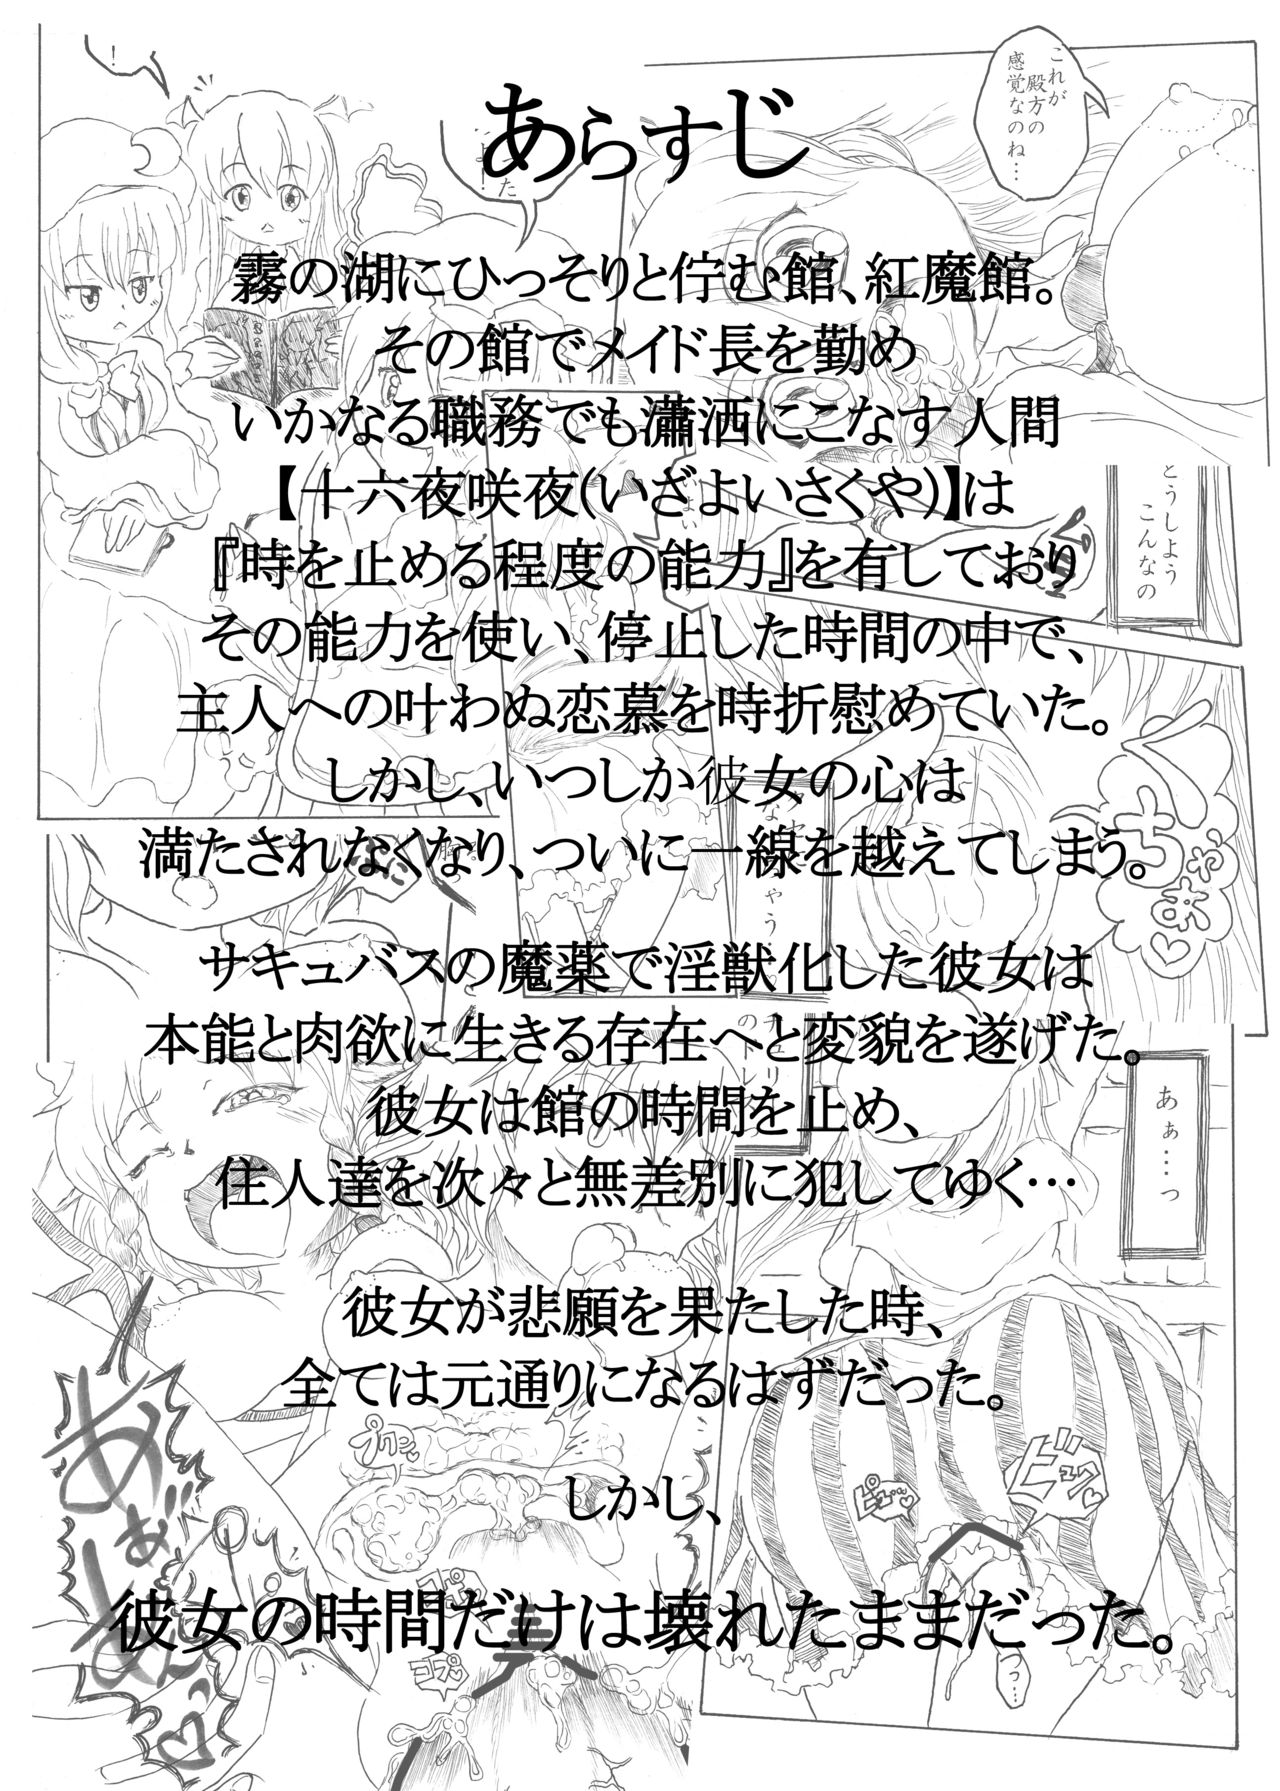 あらすじ
霧の湖にひっそりと佇む館、紅魔館。
その館でメイド長を勤め
いかなる職務でも瀟洒にこなす人間
【十六夜咲夜(いざよいさくや)】は
『時を止める程度の能力』を有しており
その能力を使い、停止した時間の中で、
主人への叶わぬ恋慕を時折慰めていた。
しかし、いつしか彼女の心は
満たされなくなり、ついに一線を越えてしまう。
サキュバスの魔薬で淫獣化した彼女は
本能と肉欲に生きる存在へと変貌を遂げた。
彼女は館の時間を止め、
住人達を次々と無差別に犯してゆく…
彼女が悲願を果たした時、
全ては元通りになるはずだった。
しかし、
彼女の時間だけは壊れたままだった。
これが
殿方の
感覚なのね…
どうしよう
こんなの
くちゃぁ♡
あぁ…っ
プクン♡
ビュク♡
ピュッ♡
コプ♡
っ…
！